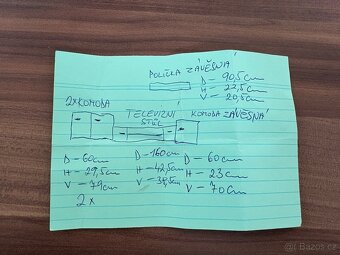 POLIČKA ZÁVĚSNÁ
D – 90,5cm
H – 22,5cm
V – 20,5cm
2x KOMODA
TELEVIZNÍ STŮL
KOMODA ZÁVĚSNÁ
D – 60cm
H – 29,5cm
V – 79cm
2x
D – 160cm
H – 42,5cm
V – 39,5cm
D – 60cm
H – 23cm
V – 70cm